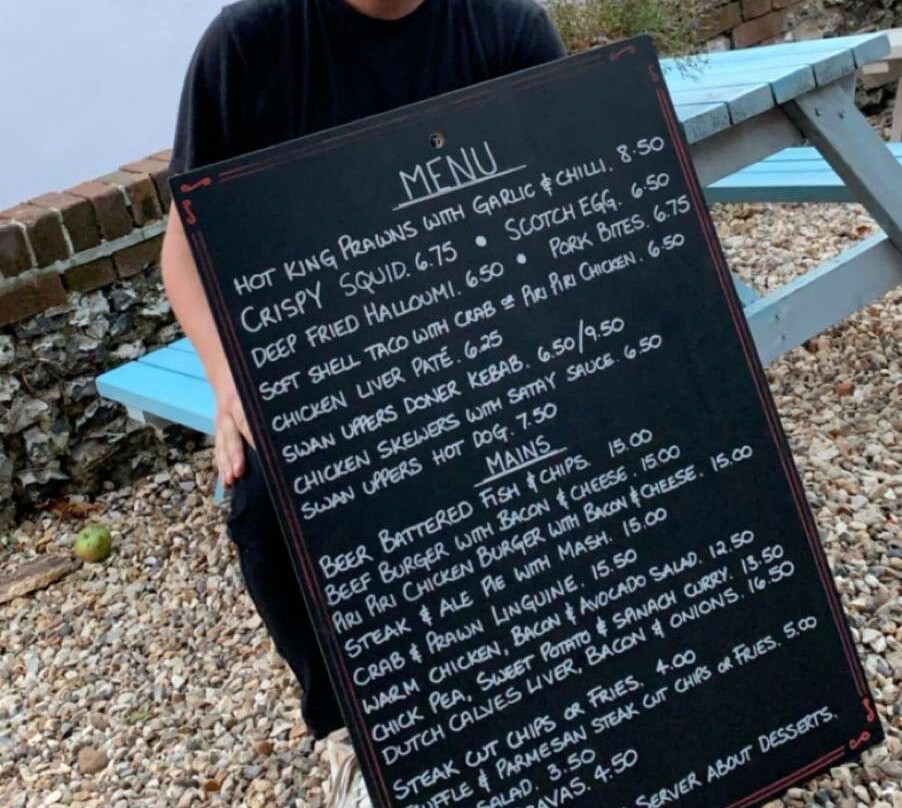 MENU
HOT KING PRAWNS WITH GARLIC & CHILLI. 8.50
CRISPY SQUID. 6.75 • SCOTCH EGG. 6.50
DEEP FRIED HALLOUMI. 6.50 • PORK BITES. 6.75
SOFT SHELL TACO WITH CRAB OR PIRI PIRI CHICKEN. 6.50
CHICKEN LIVER PATÉ. 6.25
SWAN UPPERS DONER KEBAB. 6.50/9.50
CHICKEN SKEWERS WITH SATAY SAUCE. 6.50
SWAN UPPERS HOT DOG. 7.50
MAINS
BEER BATTERED FISH & CHIPS. 15.00
BEEF BURGER WITH BACON & CHEESE. 15.00
PIRI PIRI CHICKEN BURGER WITH BACON & CHEESE. 15.00
STEAK & ALE PIE WITH MASH. 15.00
CRAB & PRAWN LINGUINE. 15.50
WARM CHICKEN, BACON & AVOCADO SALAD. 12.50
CHICK PEA, SWEET POTATO & SPINACH CURRY. 13.50
DUTCH CALVES LIVER, BACON & ONIONS. 16.50
STEAK CUT CHIPS OR FRIES. 4.00
& PARMESAN STEAK CUT CHIPS OR FRIES. 5.00
SALAD. 3.50
4.50
SERVER ABOUT DESSERTS.